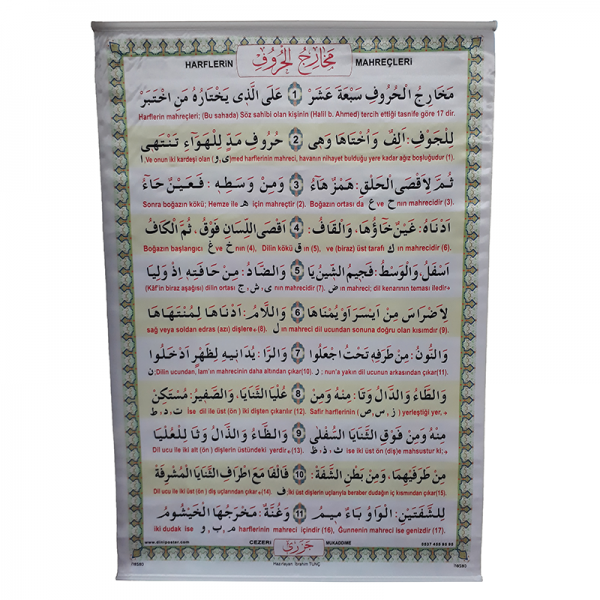 HARFLERİN مَخَارِجُ الْحُرُوفِ MAHREÇLERİ
مَخَارِجُ الْحُرُوفِ سَبْعَةَ عَشَرْ 1 عَلَى الَّذِى يَخْتَارُهُ مَنِ اخْتَبَرْ
Harflerin mahreçleri; (Bu sahada) Söz sahibi olan kişinin (Halil b. Ahmed) tercih ettiği tasnife göre 17 dir.
لِلْجَوْفِ اَلِفٌ وَاُخْتَاهَا وَهِىَ 2 حُرُوفُ مَدٍّ لِلْهَوَٓاءِ تَنْتَهِى
ا Ve onun iki kardeşi olan (و,ى) med harflerinin mahreci, havanın nihayet bulduğu yere kadar ağız boşluğudur (1).
ثُمَّ لِاَقْصَى الْحَلْقِ: هَمْزٌ هَٓاءُ 3 وَمِنْ وَسَطِهِ: فَعَيْنٌ حَٓاءُ
Sonra boğazın kökü; Hemze ile ه için mahreçtir (2). Boğazın ortası da ع ve ح nın mahrecidir (3).
اَدْنَاهُ: غَيْنٌ خَٓاؤُهَا، وَالْقَافُ: 4 اَقْصَى اللِّسَانِ فَوْقُ، ثُمَّ الْكَافُ
Boğazın başlangıcı غ ve خ nın (4), Dilin kökü ق ın (5), ve (biraz) üst tarafı ك ın mahrecidir (6).
اَسْفَلُ، وَالْوَسَطُ: فَجِيمُ الشِّينُ يَا 5 وَالضَّادُ: مِنْ حَافَتِهِ اِذْ وَلِيَا
(Kâf'ın biraz aşağısı) dilin ortası ج, ش, ى nın mahrecidir (7). ض ın mahreci; dil kenarının teması iledir+
لِاَضْرَاسَ مِنْ اَيْسَرَ اَوْ يُمْنَاهَا 6 وَاللَّامُ: اَدْنَاهَا لِمُنْتَهَاهَا
sağ veya soldan edras (azı) dişlere+(8). ل ın mahreci dil ucundan sonuna doğru olan kısımdır (9).
وَالنُّونُ: مِنْ طَرَفِهِ تَحْتُ اجْعَلُوا 7 وَالرَّا: يُدَانِيهِ لِظَهْرٍ اَدْخَلُوا
ن; Dilin ucundan, lam'ın mahrecinin daha altından çıkar(10). ر; nun'a yakın dil ucunun arkasından çıkar(11).
وَالطَّاءُ وَالدَّالُ وَتَا: مِنْهُ وَمِنْ 8 عُلْيَا الثَّنَايَا، وَالصَّفِيرُ: مُسْتَكِنْ
ط, د, ت İse dil ile üst (ön) iki dişten çıkarılır (12). Safir harflerinin (ز, س, ص) yerleştiği yer,+
مِنْهُ وَمِنْ فَوْقِ الثَّنَايَا السُّفْلٰى 9 وَالظَّاءُ وَالذَّالُ وَثَا لِلْعُلْيَا
Dil ucu ile iki alt (ön) dişlerin üstündeki yerdir+(13). ظ, ذ, ث ise iki üst ön (diş)e mahsustur ki;+
مِنْ طَرَفَيْهِمَا، وَمِنْ بَطْنِ الشَّفَةْ: 10 فَالْفَا مَعَ اَطْرَافِ الثَّنَايَا الْمُشْرِفَةْ
Dil ucu ile iki üst (ön) diş uçlarından çıkar+(14). ف; iki üst dişlerin uçlarıyla beraber dudağın iç kısmından çıkar(15).
لِلشَّفَتَيْنِ: الْوَاوُ بَاءٌ مِيمُ 11 وَغُنَّةٌ: مَخْرَجُهَا الْخَيْشُومُ
iki dudak ise و, ب, م harflerinin mahreci içindir (16), Ğunnenin mahreci ise genizdir (17).
CEZERİ جَزَرِى MUKADDİME
Hazırlayan: İbrahim TUNÇ